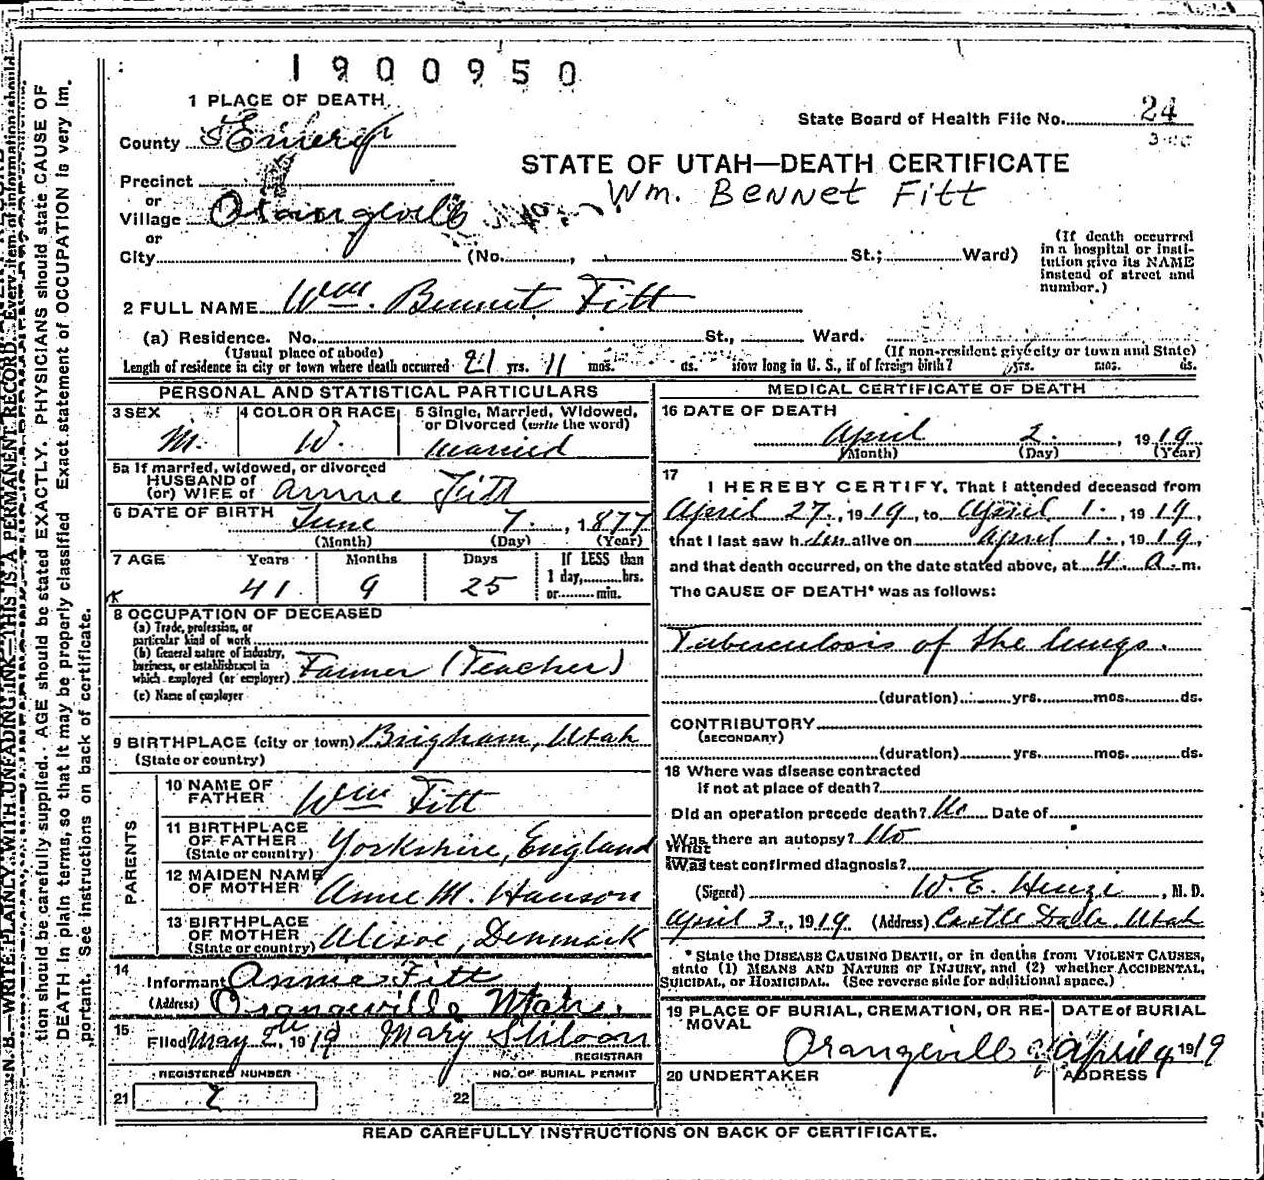 1900950
1 PLACE OF DEATH
State Board of Health File No. 24
County Emery
STATE OF UTAH—DEATH CERTIFICATE
Precinct
Wm. Bennet Fitt
or
Village Orangeville
or
City (No. , St.; Ward)
(If death occurred in a hospital or institution give its NAME instead of street and number.)
2 FULL NAME Wm. Bennet Fitt
(a) Residence. No. St., Ward.
(Usual place of abode) (If non-resident give city or town and State)
Length of residence in city or town where death occurred 21 yrs. 11 mos. ds. How long in U. S., if of foreign birth? yrs. mos. ds.
PERSONAL AND STATISTICAL PARTICULARS
3 SEX M.
4 COLOR OR RACE W.
5 Single, Married, Widowed, or Divorced (write the word) Married
5a If married, widowed, or divorced
HUSBAND of
(or) WIFE of Annie Fitt
6 DATE OF BIRTH June 7. , 1877
(Month) (Day) (Year)
7 AGE Years Months Days If LESS than
41 9 25 1 day, hrs.
or min.
8 OCCUPATION OF DECEASED
(a) Trade, profession, or
particular kind of work
(b) General nature of industry,
business, or establishment in
which employed (or employer) Farmer (Teacher)
(c) Name of employer
9 BIRTHPLACE (city or town) Brigham, Utah
(State or country)
PARENTS
10 NAME OF
FATHER Wm Fitt
11 BIRTHPLACE
OF FATHER
(State or country) Yorkshire, England
12 MAIDEN NAME
OF MOTHER Anne M. Hanson
13 BIRTHPLACE
OF MOTHER
(State or country) Denmark
14
Informant Annie Fitt
(Address) Orangeville Utah.
15
Filed May 2th, 1919 Mary
REGISTRAR
REGISTERED NUMBER NO. OF BURIAL PERMIT
21 22
MEDICAL CERTIFICATE OF DEATH
16 DATE OF DEATH
April 2. , 1919
(Month) (Day) (Year)
17
I HEREBY CERTIFY, That I attended deceased from
April 27, 1919, to April 1. , 1919,
that I last saw him alive on April 1. , 1919,
and that death occurred, on the date stated above, at 4. a. m.
The CAUSE OF DEATH* was as follows:
Tuberculosis of the lungs.
(duration) yrs. mos. ds.
CONTRIBUTORY
(SECONDARY)
(duration) yrs. mos. ds.
18 Where was disease contracted
if not at place of death?
Did an operation precede death? No Date of
Was there an autopsy? No
What
Was test confirmed diagnosis?
(Signed) W. E. , M. D.
April 3. , 1919 (Address) Castle Dale, Utah
* State the DISEASE CAUSING DEATH, or in deaths from VIOLENT CAUSES,
state (1) MEANS AND NATURE OF INJURY, and (2) whether ACCIDENTAL,
SUICIDAL, or HOMICIDAL. (See reverse side for additional space.)
19 PLACE OF BURIAL, CREMATION, OR REMOVAL Orangeville
DATE of BURIAL April 4, 1919
20 UNDERTAKER ADDRESS
READ CAREFULLY INSTRUCTIONS ON BACK OF CERTIFICATE.
N. B.—WRITE PLAINLY, WITH UNFADING INK—THIS IS A PERMANENT RECORD. Every item of information should
tion should be carefully supplied. AGE should be stated EXACTLY. PHYSICIANS should state CAUSE OF
DEATH in plain terms, so that it may be properly classified. Exact statement of OCCUPATION is very im.
portant. See instructions on back of certificate.